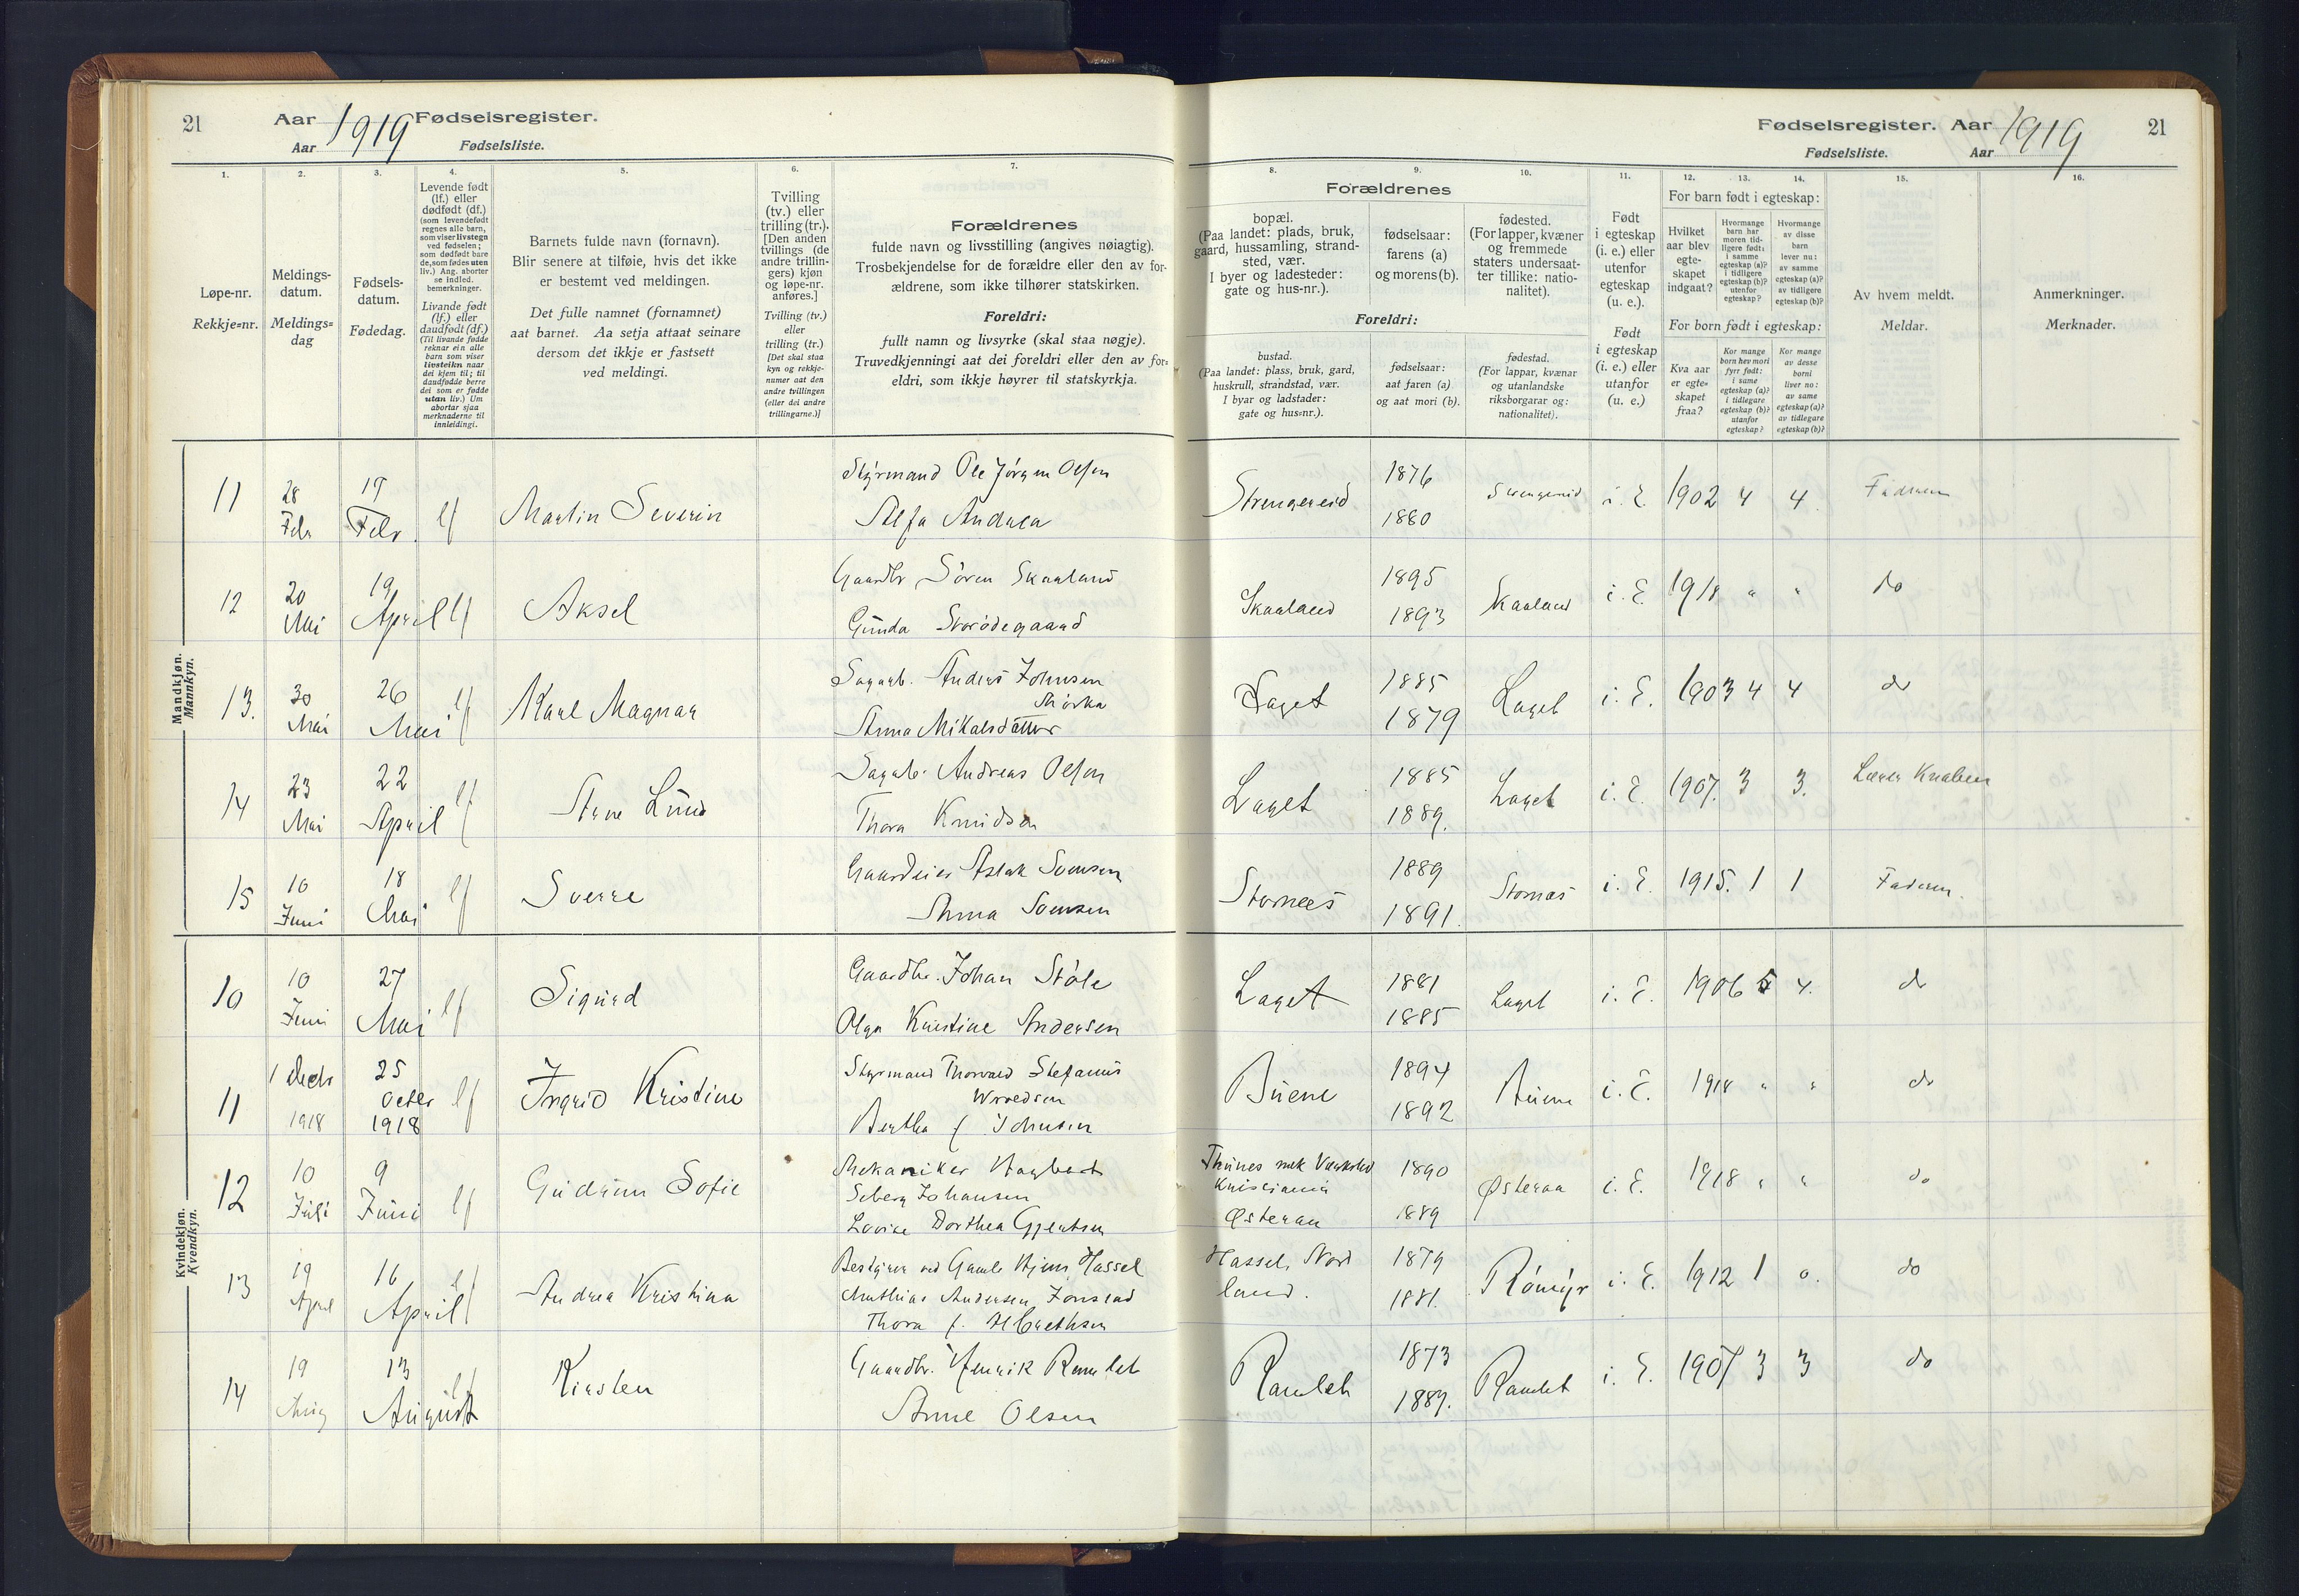 21
Aar 1919 Fødselsregister.
Aar Fødselsliste.
Fødselsregister. Aar 1919
21
Fødselsliste. Aar
1. 2. 3. 4. 5. 6. 7.
Løpe-nr.
Rekkje=nr.
Meldings-
datum.
Meldings=
dag
Fødsels-
datum.
Fødedag.
Levende født
(lf.) eller
dødfødt (df.)
(som levendefødt
regnes alle barn,
som viser livstegn
ved fødselen;
som dødfødt bare
de, som fødes uten
liv.) Ang. aborter
se indled.
bemerkninger.
Livande født
(lf.) eller
daudfødt (df.)
(Til livande fødde
reknar ein alle
barn som viser
livsteikn naar
dei kjem til; til
daudfødde berre
dei som er fødde
utan liv.) Um
abortar sjaa
merknaderne til
innleidingi.
Barnets fulde navn (fornavn).
Blir senere at tilføie, hvis det ikke
er bestemt ved meldingen.
Det fulle namnet (fornamnet)
aat barnet. Aa setja attaat seinare
dersom det ikkje er fastsett
ved meldingi.
Tvilling
(tv.) eller
trilling (tr.).
[Den anden
tvillings (de
andre trillin-
gers) kjøn
og løpe-nr.
anføres.]
Tvilling (tv.)
eller
trilling (tr.)
[Det skal staa
kyn og rekkje-
numer aat den
andre tvillingen
(eller dei andre
trillingarne.)]
Forældrenes
fulde navn og livsstilling (angives nøiagtig).
Trosbekjendelse for de forældre eller den av for-
ældrene, som ikke tilhører statskirken.
Foreldri:
fullt namn og livsyrke (skal staa nøgje).
Truvedkjenningi aat dei foreldri eller den av for=
eldri, som ikkje høyrer til statskyrkja.
8. 9. 10. 11. 12. 13. 14. 15. 16.
Forældrenes
bopæl.
(Paa landet: plads, bruk,
gaard, hussamling, strand-
sted, vær.
I byer og ladesteder:
gate og hus-nr.).
fødselsaar:
farens (a)
og morens (b).
fødested.
(For lapper, kvæner
og fremmede
staters undersaat-
ter tillike: natio-
nalitet).
Foreldri:
bustad.
(Paa landet: plass, bruk, gard,
huskrull, strandstad, vær.
I byar og ladstader:
gate og hus=nr.).
fødselsaar:
aat faren (a)
og aat mori (b).
fødestad.
(For lappar, kvænar
og utanlandske
riksborgarar og:
nationalitet).
Født
i egteskap
(i. e.) eller
utenfor
egteskap
(u. e.).
Født
i egteskap
(i. e.) eller
utanfor
(u. e.)
For barn født i egteskap:
Hvilket
aar blev
egte-
skapet
indgaat?
Hvormange
barn har
moren tid-
ligere født:
i samme
egteskap (a)?
i tidligere
egteskap (b)?
utenfor
egteskap?
Hvormange
av disse
barn
lever nu:
av samme
egteskap (a)?
av tidligere
egteskap (b)?
For born født i egteskap:
Kva aar
er egte=
skapet
fraa?
Kor mange
born hev mori
fyrr født:
i same
egteskap (a)?
i tidlegare
egteskap (b)?
utanfor
egteskap?
Kor mange
av desse
borni
liver no:
av same
egteskap (a)?
av tidlegare
egteskap (b)?
Av hvem meldt.
Meldar.
Anmerkninger.
Merknader.
Mandkjøn.
Mannkyn.
11 28 Febr 19 Febr lf Martin Severin Styrmand Ole Jörgen Olsen
Alfa Andrea
Strengereid 1876 1880 Strengereid i. E. 1902 4 4 Faderen
12 20 Mai 19 April lf Aksel Gaardbr Sören Skaaland
Gunda Storödegaard
Skaaland 1895 1893 Skaaland i. E. 1918 " " do
13. 30 Mai 26 Mai lf Karl Magnar Sagarb. Anders Johnsen
Anna Mikalsdatter
Laget 1885 1879 Laget i. E. 1903 4 4 do
14 23 Mai 22 April lf Arne Lund Sagarb. Andreas Olsen
Thora Knudsen
Laget 1885 1889. Laget i. E. 1907. 3 3. Lærer Knaben
15 10 Juni 18 Mai lf Sverre Gaardeier Aslak Svensen
Anna Svensen
Stornæs 1889 1891. Stornæs i. E. 1915. 1 1 Faderen.
Kvindekjøn.
Kvendkyn.
10 10 Juni 27 Mai lf Sigurd Gaardbr. Johan Stöle
Olga Kristine Andersen
Laget 1881 1885 Laget i. E. 1906 5 4. do
11 1 Decb 1918 25 Octbr 1918 lf Ingrid Kristine Styrmand Thorvald Stefanus
Bertha f. Johnsen
Buene 1894 1892 Buene i. E. 1918 " " do
12 10 Juli 9 Juni lf Gudrun Sofie Mekaniker Hagbart
Seberg Johansen
Lovise Dorthea Gjertsen
Thunes mek Værksted
Kristiania
Østeraa 1890 1889 Østeraa i. E. 1918 " " do
13 19 April 16 April lf Andrea Kristina Bestyrer ved Gamle Hjem, Hassel
Mathias Andersen Jonstad
Thora f.
Hassel, Nord
land. 1879 1881. Römyr i. E. 1912 1 0. do
14 19 Aug 13 August lf Kirsten Gaardbr. Henrik Ramlet
Anne Olsen
Ramlet 1873 1889. Ramlet i. E. 1907 3 3 do